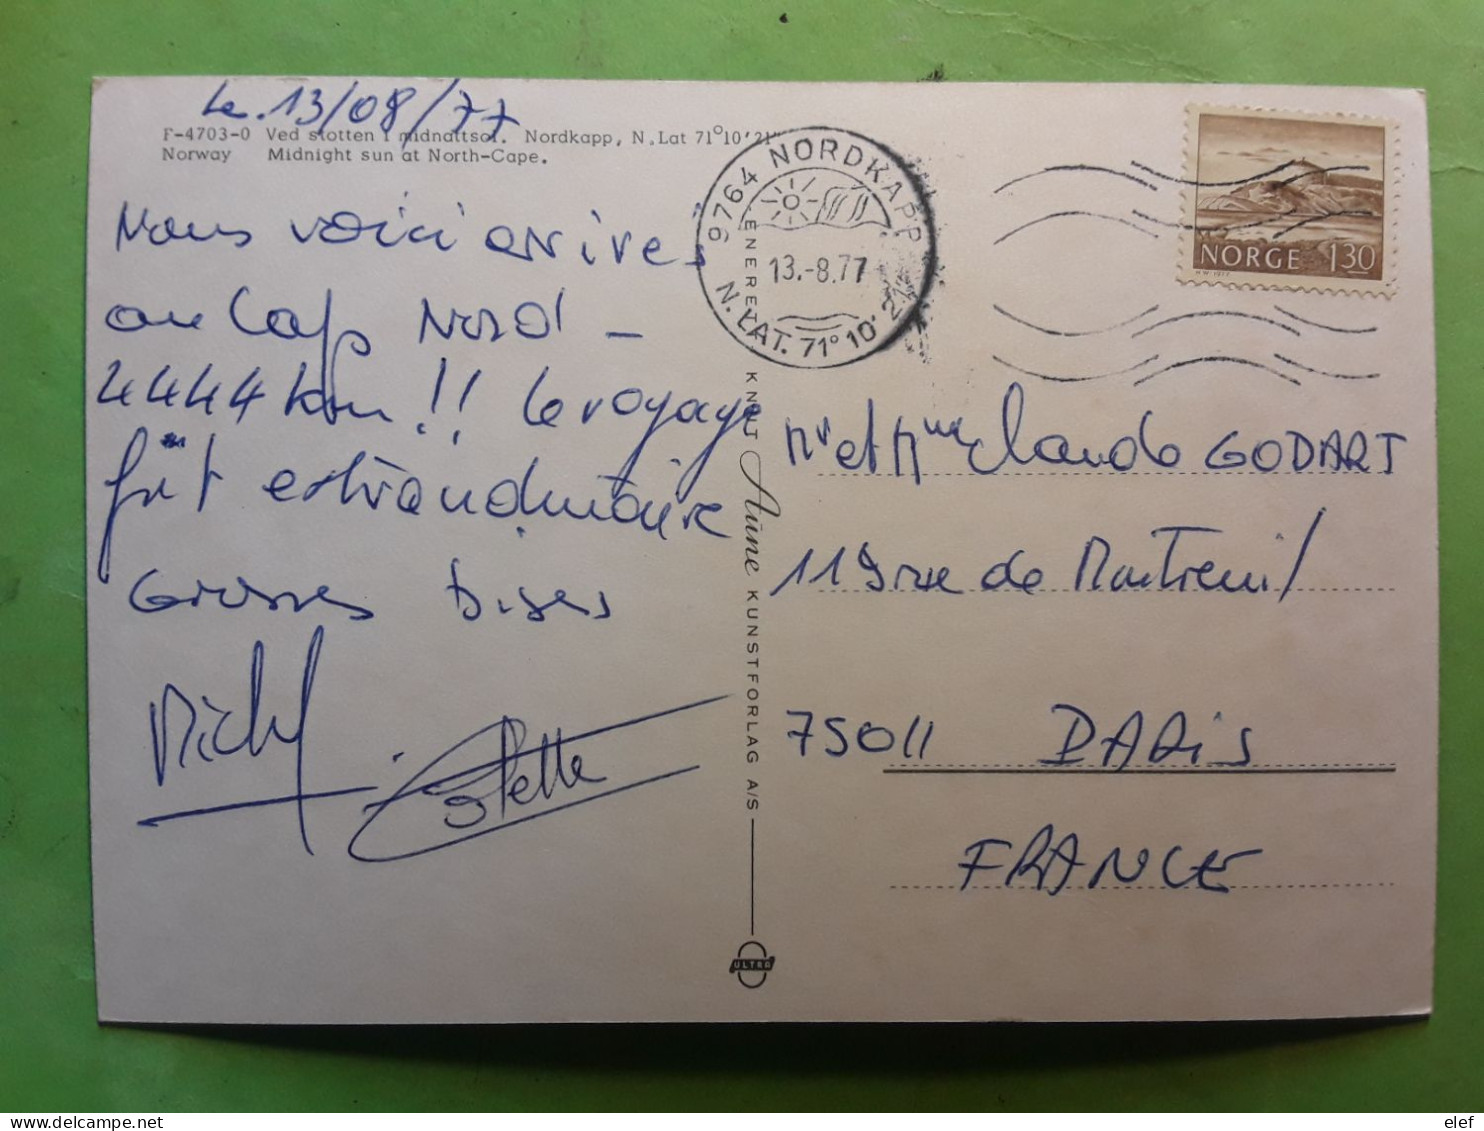 Le. 13/08/77
F-4703-0 Ved støtten i midnattsol. Nordkapp, N.Lat 71°10'21"
Norway Midnight sun at North-Cape.
Nous voici arrivés
au Cap Nord -
4444 km !! Le voyage
fût extraordinaire
Grosses bises
Michel
Colette
9764 NORDKAPP
13.-8.77
N. LAT. 71° 10' 21"
NORGE 130
ENERETT KNUT Aune KUNSTFORLAG A/S
ULTRA
Mr et Mme Claude GODART
119 rue de Montreuil
75011 PARIS
FRANCE
elef